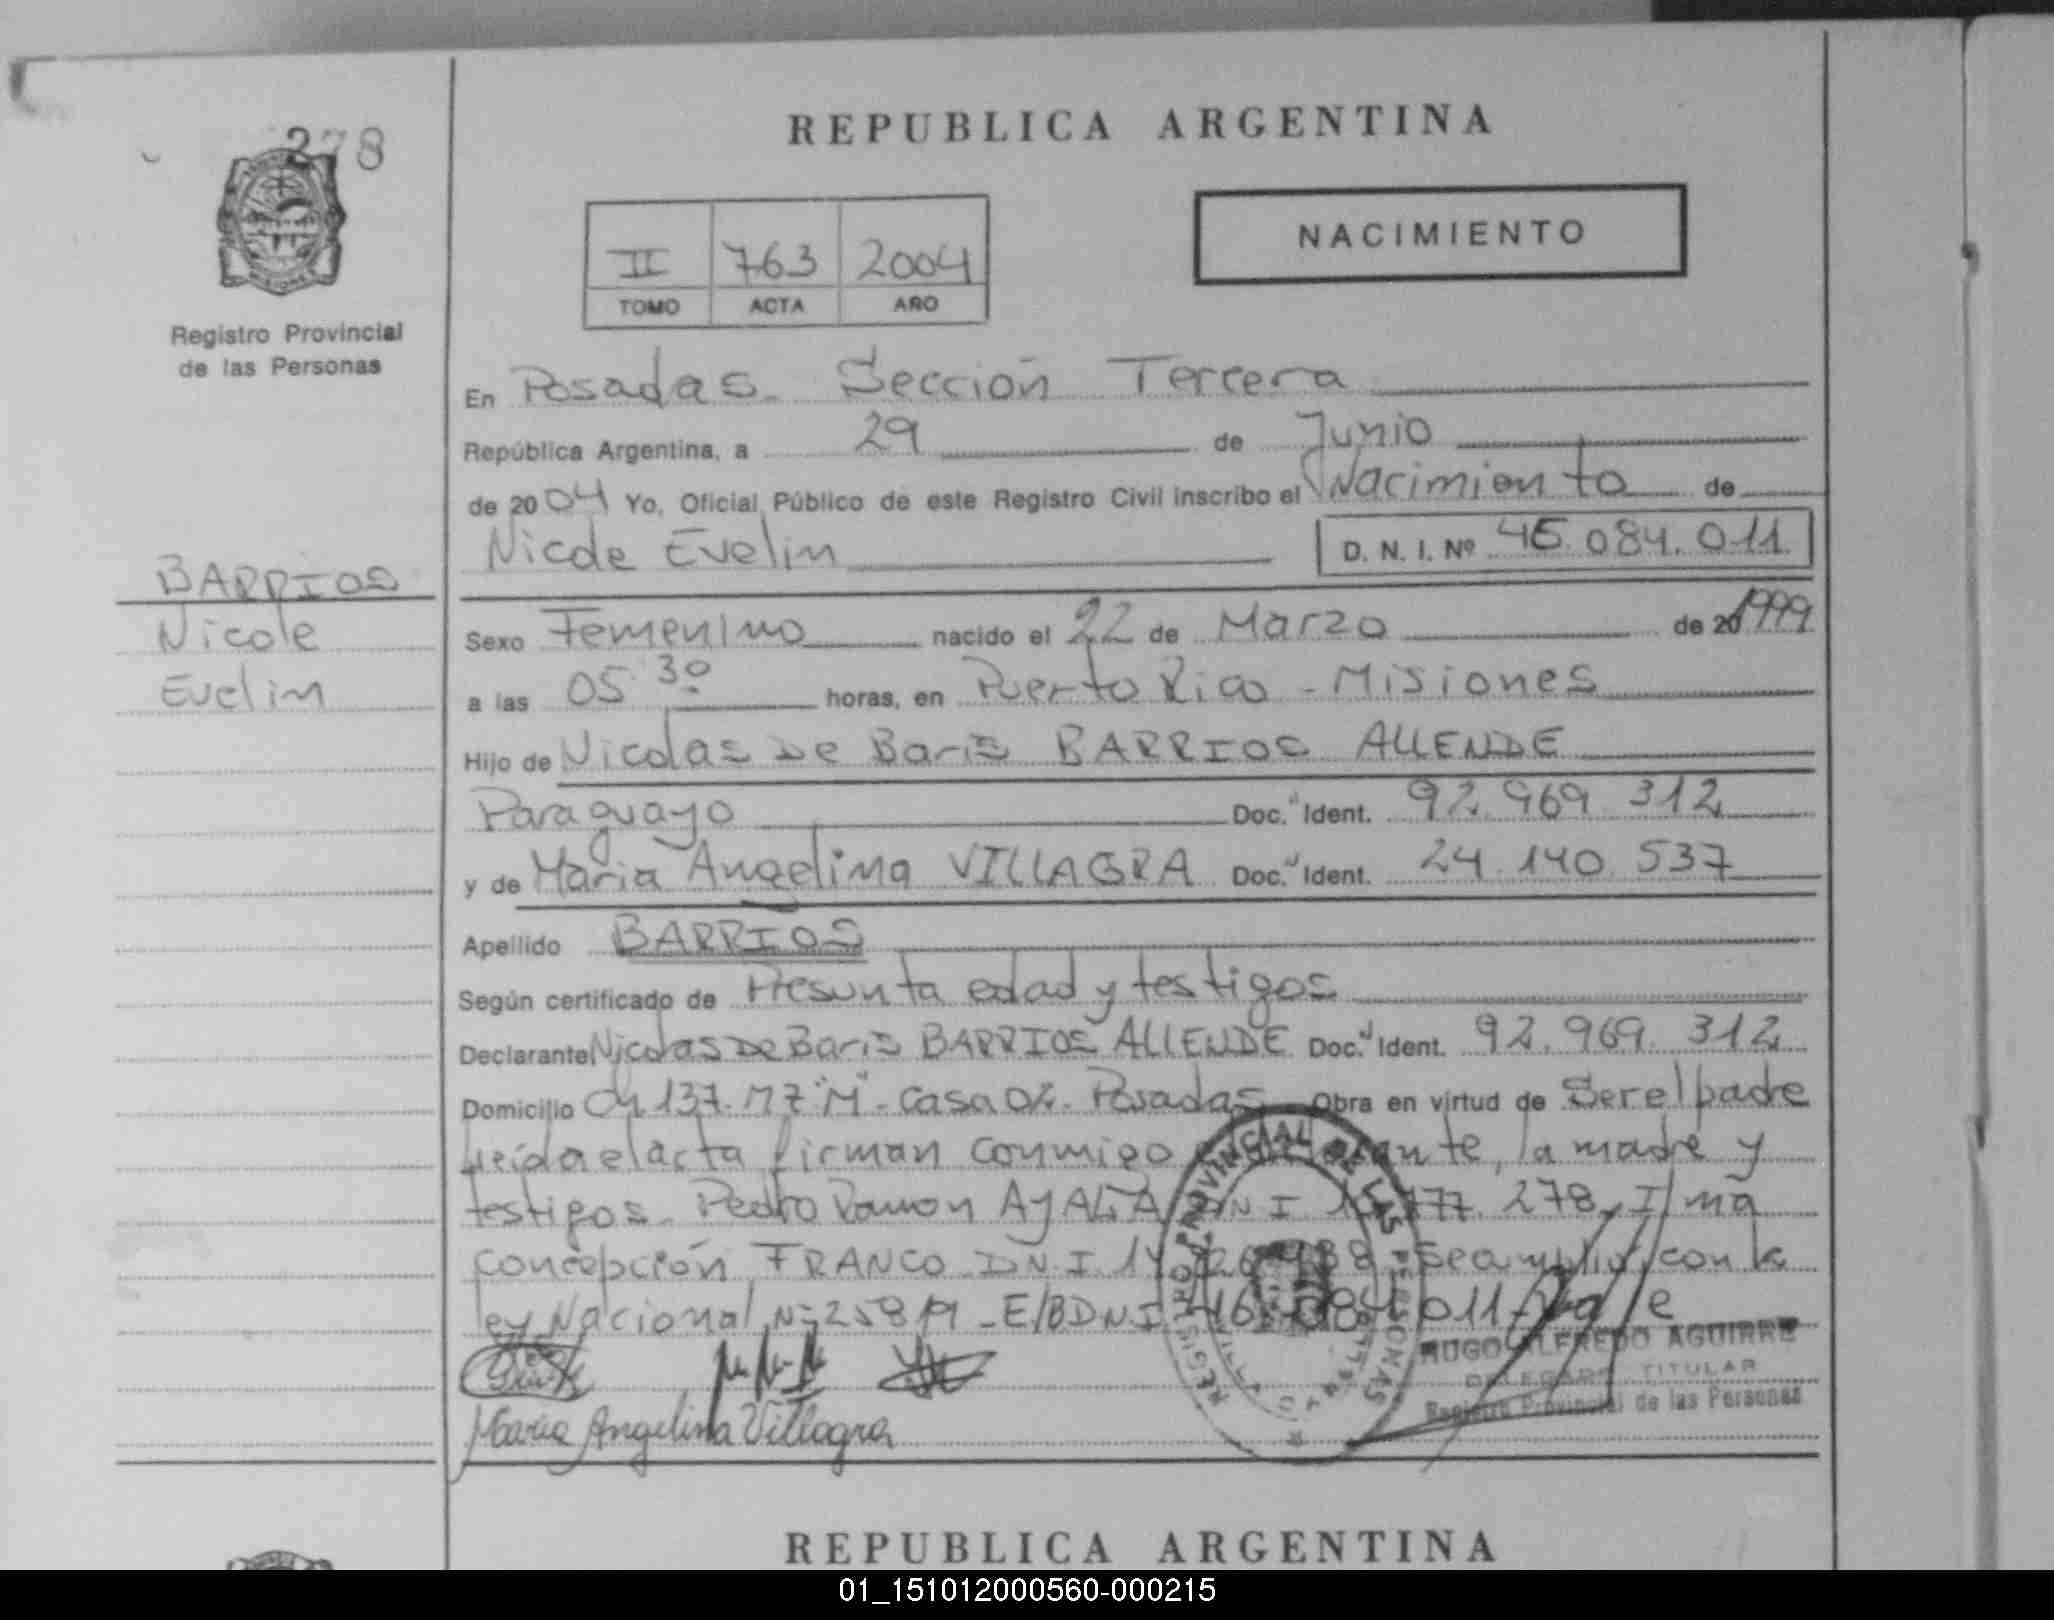 278
REPUBLICA ARGENTINA
NACIMIENTO
II 763 2004
TOMO ACTA AÑO
Registro Provincial
de las Personas
BARRIOS
Nicole
Evelin
En Posadas. Sección Tercera
República Argentina, a 29 de Junio
de 2004 Yo, Oficial Público de este Registro Civil inscribo el Nacimiento de
Nicole Evelin D. N. I. Nº 46.084.011
Sexo Femenino nacido el 22 de Marzo de 20 1999
a las 05 30 horas, en Puerto Rico - Misiones
Hijo de Nicolas De Baris BARRIOS ALLENDE
Paraguayo Doc. Ident. 92.969.312
y de Maria Angelina VILLAGRA Doc. Ident. 24.140.537
Apellido BARRIOS
Según certificado de Presunta edad y testigos
Declarante Nicolas De Baris BARRIOS ALLENDE Doc. Ident. 92.969.312
Domicilio Ch 137. MZ "M" - Casa 02. Posadas Obra en virtud de Ser el padre
Leída el acta firman conmigo la madre y
testigos. Pedro Ramon AYALA DNI 278, Ilma
concepción FRANCO D.N.I. 14 Se amplio con la
ley Nacional Nº 25819 - E/BDNI 46.084.011 Vale
Maria Angelina Villagra
REGISTRO PROVINCIAL DE LAS PERSONAS
HUGO ALFREDO AGUIRRE
DELEGADO TITULAR
Registro Provincial de las Personas
REPUBLICA ARGENTINA
01_151012000560-000215